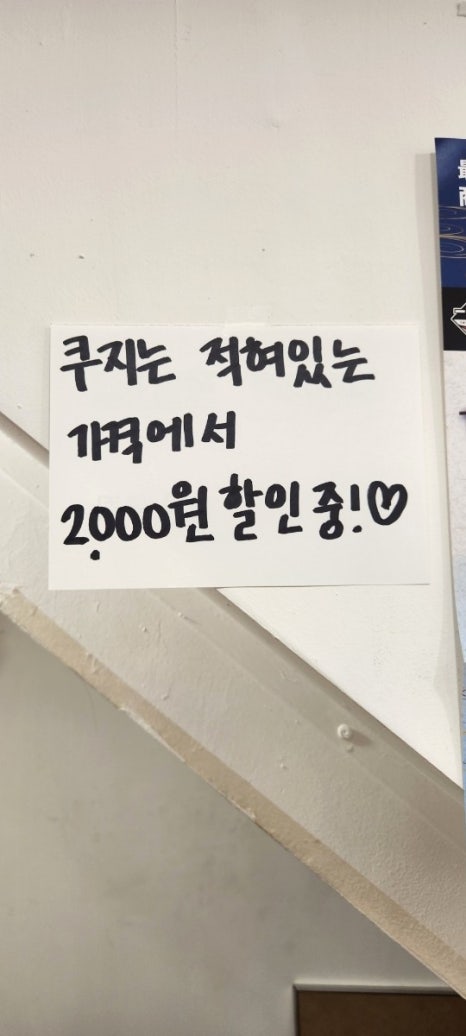 쿠지는 적혀있는
가격에서
2,000원 할인 중!♡